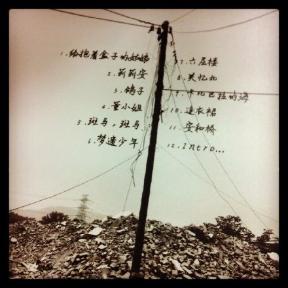 1.给抱着盒子的姑娘
2.莉莉安
3.鸽子
4.董小姐
5.斑马,斑马
6.梦遗少年
7.六层楼
8.关忆北
卡比巴拉的海
10.连衣裙
11.安和桥
12.Intro...